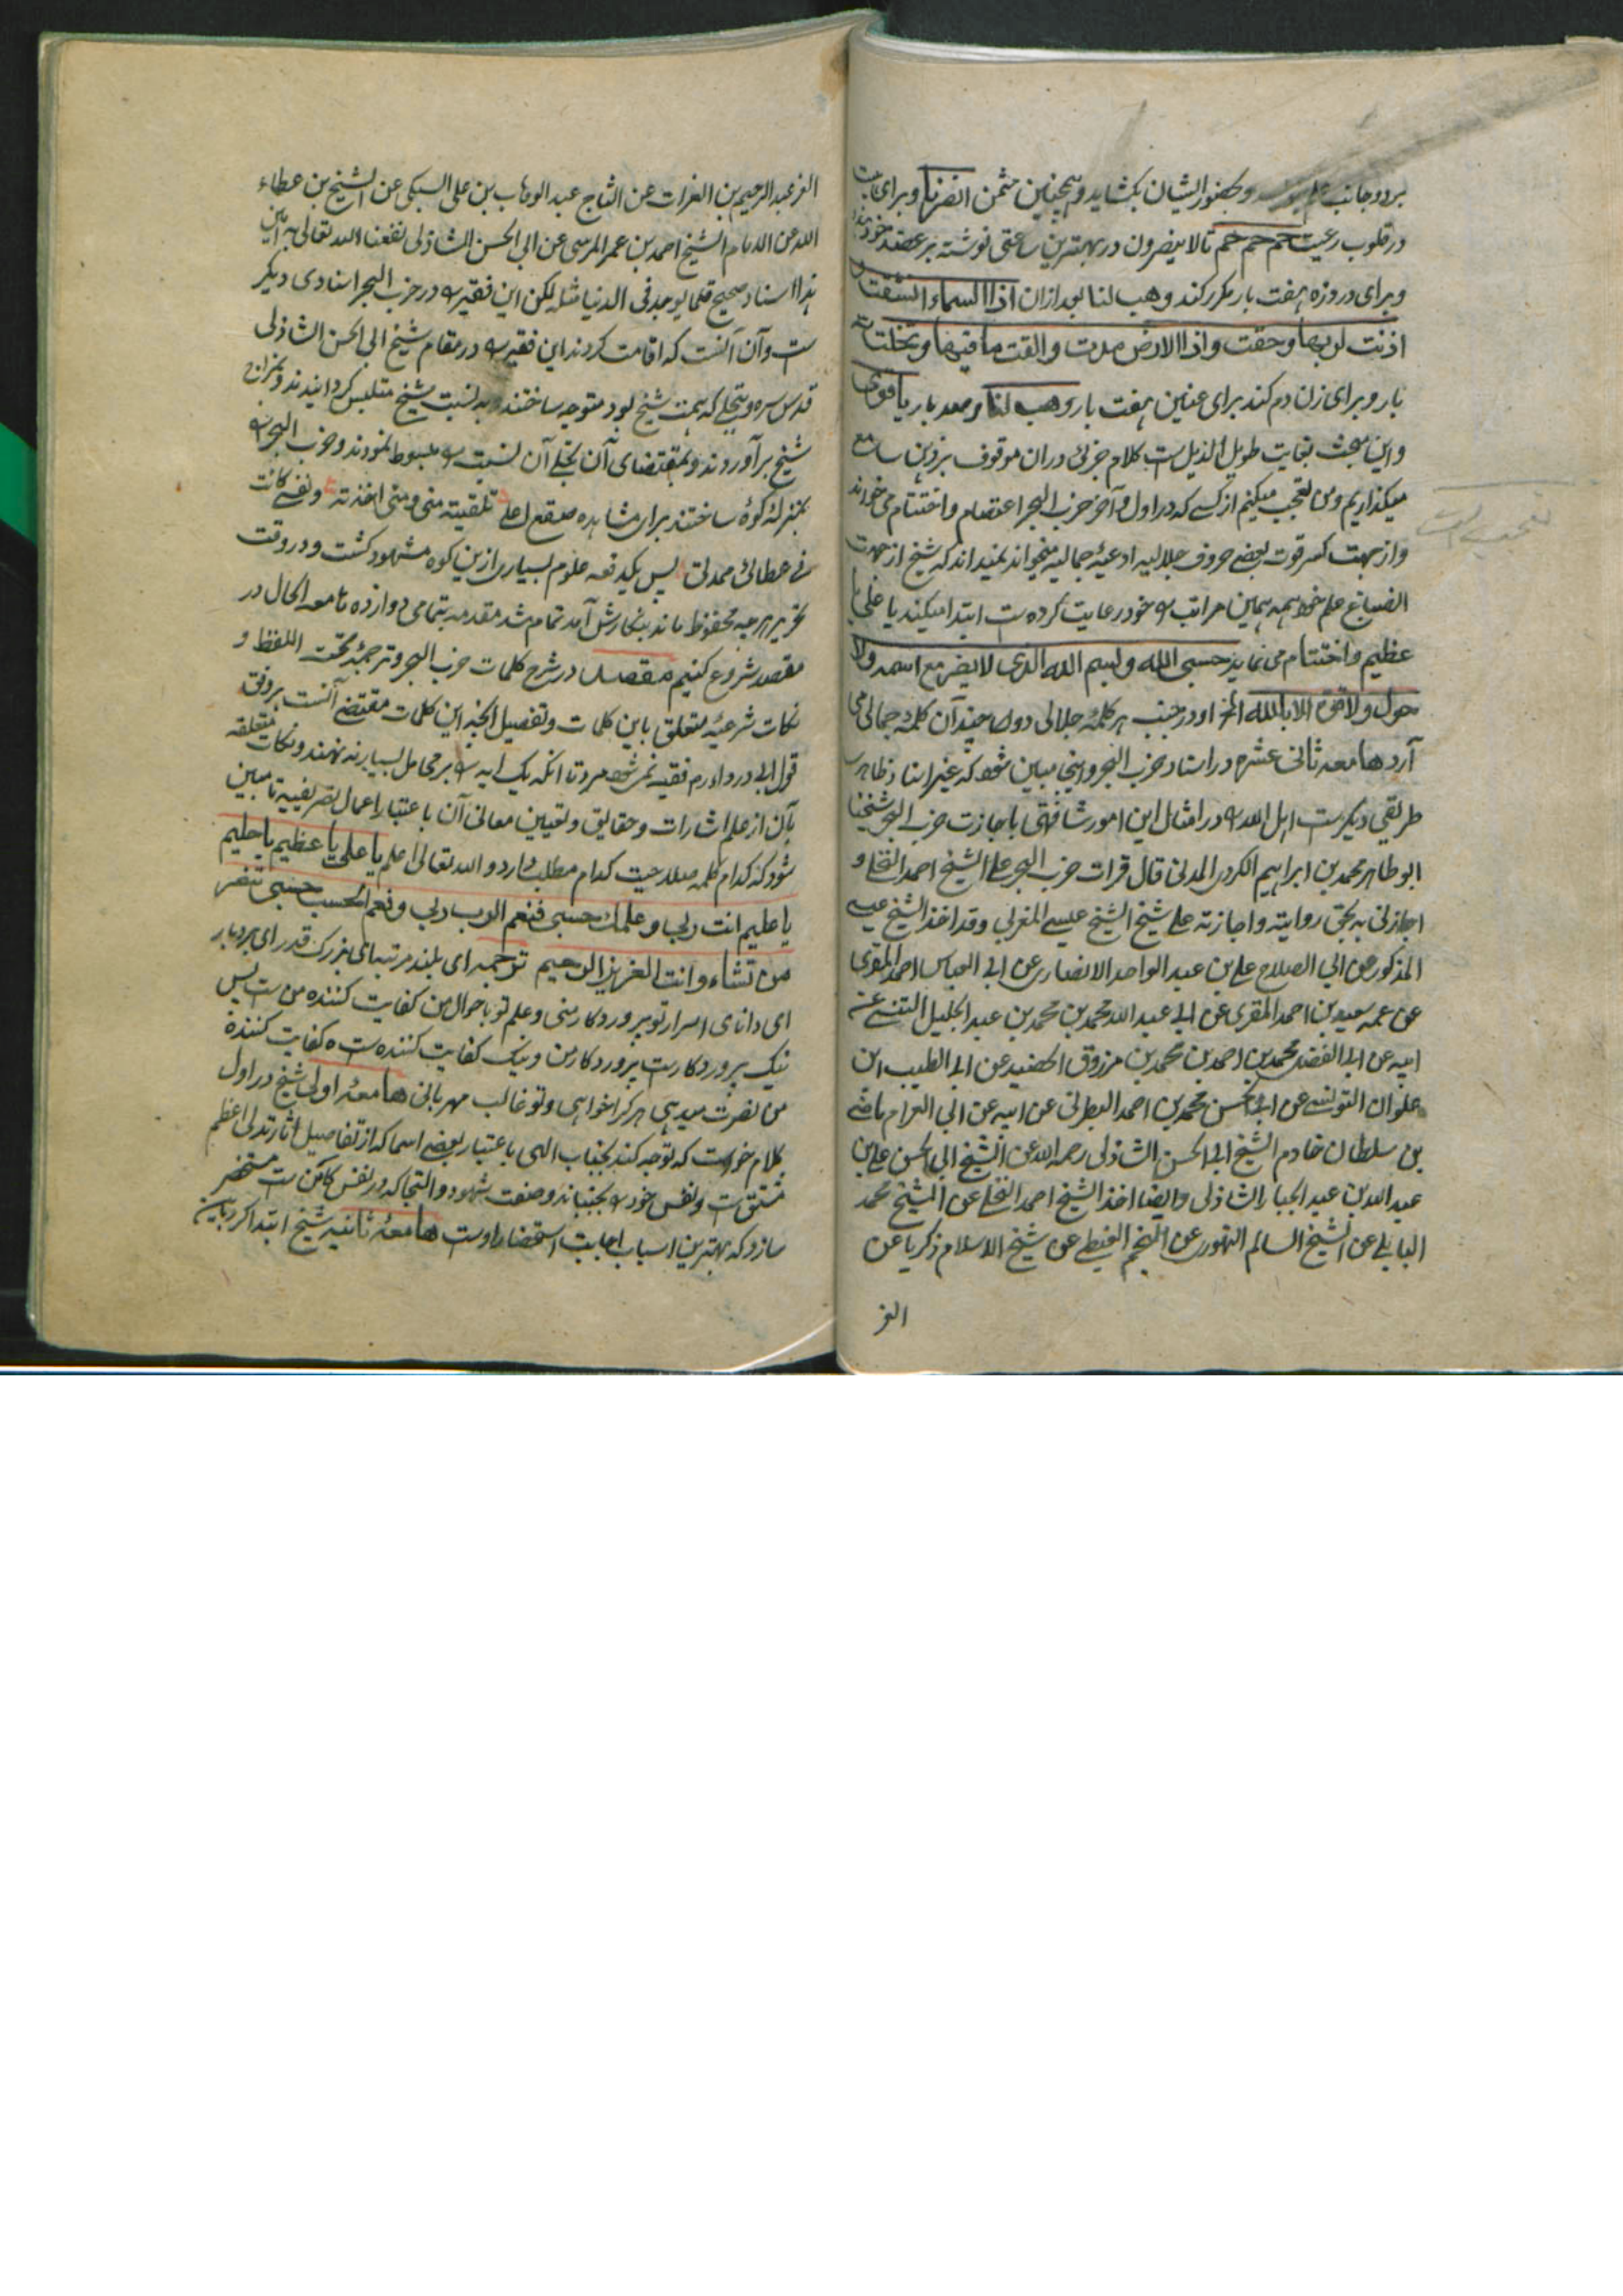 بر دو جانب وبحضور ایشان بکشاید وهمچنین خمش انصرنا وبرای
در قلوب رعیت حم حم حم تا لا ینصرون در بهترین ساعتی نوشته بر عضد خود
وبرای درد زه هفت بار مکرر کند وهب لنا بعد ازان اذا السماء انشقت
اذنت لربها وحقت واذا الارض مدت والقت ما فیها وتخلت
بار وبرای زن دم کند برای عنین هفت بار وهب لنا وصد بار یا قوی
واین مبحث بغایت طویل الذیل ست کلام جزئی دران موقوف بر ذهن سامع
میگذاریم ومن تعجب میکنم از کسے که در اول وآخر حزب البحر اعتصام واختتام می خواند
واز جهت کسر قوت بعضے حروف جلالیه ادعیهٔ جمالیه میخواند نمیداند که شیخ از جهت
علم خود همه همین مراتب را خود رعایت کرده ست ابتدا میکند یا علی یا
عظیم واختتام می نماید حسبی الله وبسم الله الذی لا یضر مع اسمه ولا
حول ولا قوة الا بالله او در جنب هر کلمهٔ جلالی دو چند آن کلمهٔ جمالی می
آرد هامعه ثانی عشره در اسناد حزب البحر واینجا مبین شود که غیر اسناد ظاهر
طریقی دیگر ست اهل الله را در امثال این امور شافهنی باجازت حزب البحر شیخنا
ابو طاهر محمد بن ابراهیم الکردی المدنی قال قرات حزب البحر علی الشیخ احمد النخلی و
اجازنی به بحق روایته واجازته علی شیخ الشیخ عیسی المغربی وقد اخذ الشیخ عیسے
المذکور عن ابی الصلاح علی بن عبد الواحد الانصاری عن ابی العباس احمد المقری
عن عمه سعید بن احمد المقری عن ابی عبد الله محمد بن محمد بن عبد الجلیل التنسی عن
ابیه عن ابی الفضل محمد بن احمد بن محمد بن مرزوق الحفید عن ابی الطیب ابن
علوان التونسی عن ابی الحسن محمد بن احمد البطرنی عن ابیه عن ابی العزام ماضی
بن سلطان خادم الشیخ ابی الحسن الشاذلی رحمه الله عن الشیخ ابی الحسن علی بن
عبد الله بن عبد الجبار الشاذلی وایضا اخذ الشیخ احمد النخلی عن الشیخ محمد
البابلی عن الشیخ السالم السنهوری عن النجم الغیطی عن شیخ الاسلام زکریا عن
العز
العز عبد الرحیم بن الفرات عن التاج عبد الوهاب بن علی السبکی عن الشیخ بن عطاء
الله عن الامام الشیخ احمد بن عمر المرسی عن ابی الحسن الشاذلی نفعنا الله تعالی به آمین
هذا اسناد صحیح قلما یوجد فی الدنیا مثله لکن این فقیر را در حزب البحر اسنادی دیگر
ست وآن آنست که اقامت کردند این فقیر را در مقام شیخ ابی الحسن الشاذلی
قدس سره وتجلی که سمت شیخ بود متوجه ساختند وبه نسبت شیخ متلبس گردانیدند
شیخ بر آوردند وبمقتضای آن تجلی آن نسبت را مبسوط نمودند وحزب البحر را
بمنزله کوهٔ ساختند برای مشاهده تلقیته منی ومنی اخذته ونفسے کانت
فی عطائی ممدتی پس یکدفعه علوم بسیاری ازین کوه مشهود گشت ودر وقت
تحریر هر چه محفوظ ماند بنگارش آمد تمام شد مقدمه بتمامی دوازده هامعه الحال در
مقصد شروع کنیم مقصد در شرح کلمات حزب البحر وترجمهٔ تحت اللفظ و
نکات شرعیهٔ متعلق باین کلمات وتفصیل این کلمات مقتضے آنست بر وفق
قول ابی درداء رم فقیه نمی شود مرد تا آنکه یک آیه را بر محامل بسیار نه نهند ونکات متعلقه
بآن از علم اشارات وحقایق وتعیین معانی آن باعتبار اعمال تصریفیه تا مبین
شود که کدام کلمه صلاحیت کدام مطلب دارد والله تعالی اعلم یا علی یا عظیم یا حلیم
یا علیم انت ربی وعلمك حسبی فنعم الرب ربی ونعم الحسب حسبی تنصر
من تشاء وانت العزیز الرحیم ترجمه ای بلند مرتبهای بزرگ قدر ای بردبار
ای دانای اسرار تو پروردگار منی وعلم تو باحوال من کفایت کننده من ست پس
نیک پروردگار ست پروردگار من ونیک کفایت کننده ست کفایت کنندهٔ
من نصرت میدهی هر کرا خواهی وتو غالب مهربانی هامعهٔ اولی شیخ در اول
کلام خواست که توجه کند بجناب الهی باعتبار بعضے اسما که از تفاصیل اثار تدلی اعظم
مشتق ست ونفس خود را بجنباند وصفت شهود والتجا که در نفس کامن ست مستحضر
سازد که بهترین اسباب اجابت استحضار اوست هامعهٔ ثانیه شیخ ابتدا کرد باین